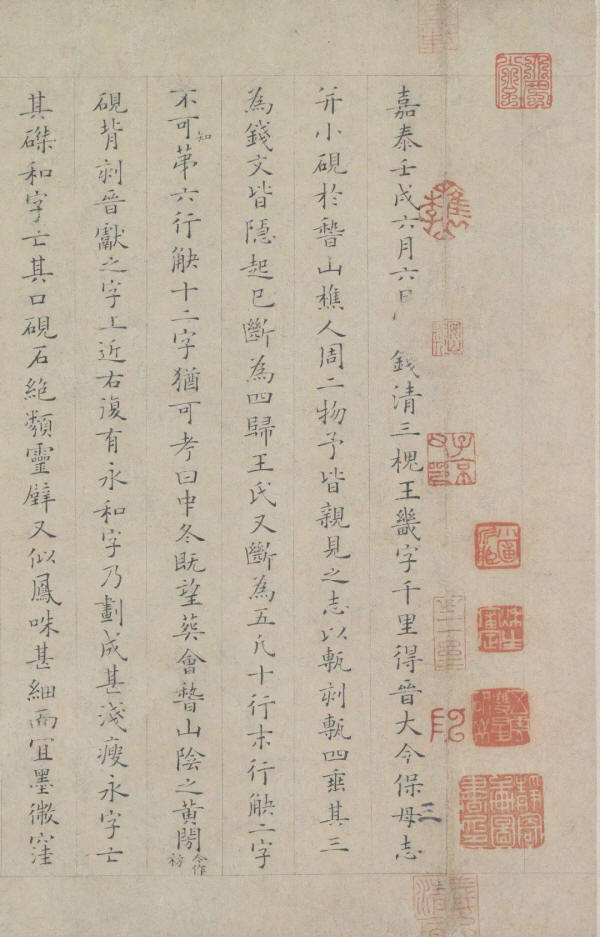 嘉泰壬戌六月六日 錢清三槐王畿字千里得晉大令保母志
并小硯於稽山樵人周二物予皆親見之志以甎刻甎四垂其三
為錢文皆隱起已斷為四歸王氏又斷為五凡十行末行觖二字
不可知第六行觖十二字猶可考曰中冬既望葬會稽山陰之黃閍今作祊
硯背刻晉獻之字上近右復有永和字乃劃成甚淺瘦永字亡
其磔和字亡其口硯石絕類靈璧又似鳳咮甚細而宜墨微窪